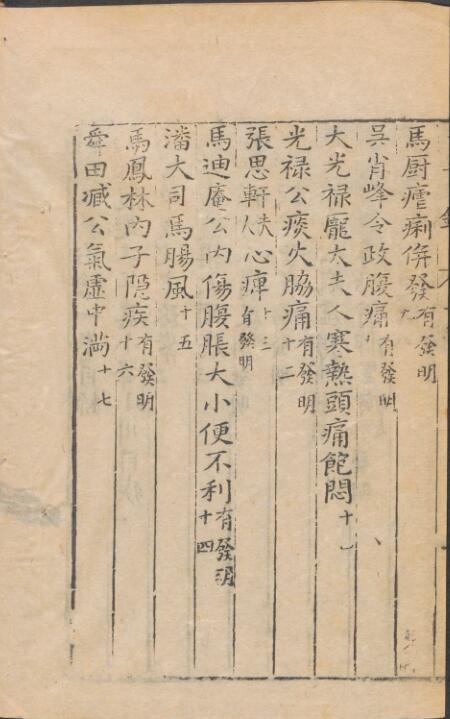 馬厨瘧痢併發有發明九
吳肖峰令政腹痛有發明
大光禄龐太夫人寒熱頭痛飽悶十一
光禄公痰火脇痛有發明十二
張思軒夫人心痺有發明十三
馬迪庵公内傷腹脹大小便不利有發明十四
潘大司馬腸風十五
馬鳳林内子隠疾有發明十六
舜田臧公氣虛中滿十七